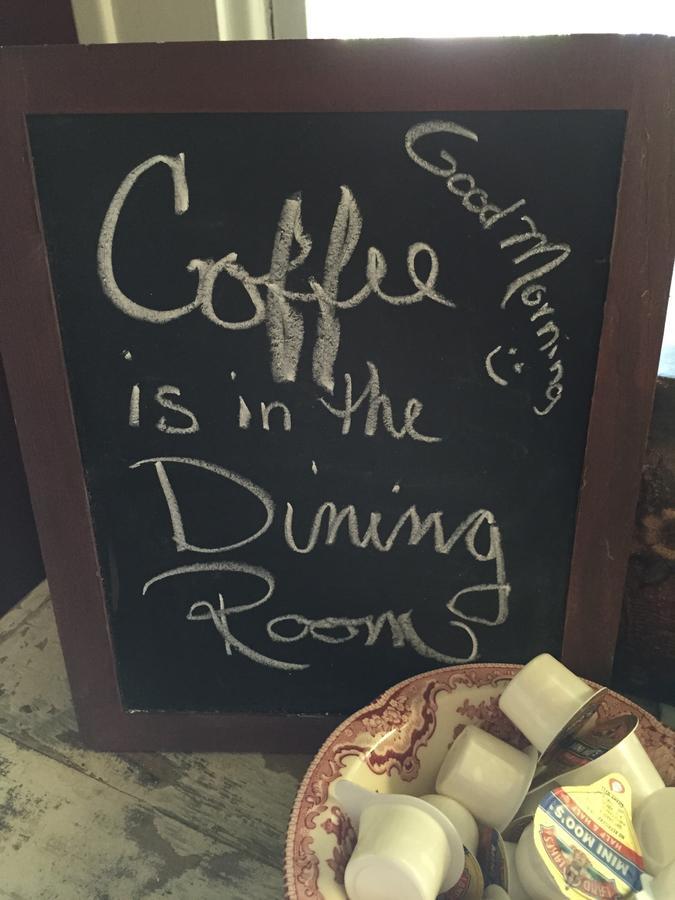 Good Morning
Coffee
is in the
Dining
Room
MINI MOO'S
HALF & HALF
LAND
LAKES